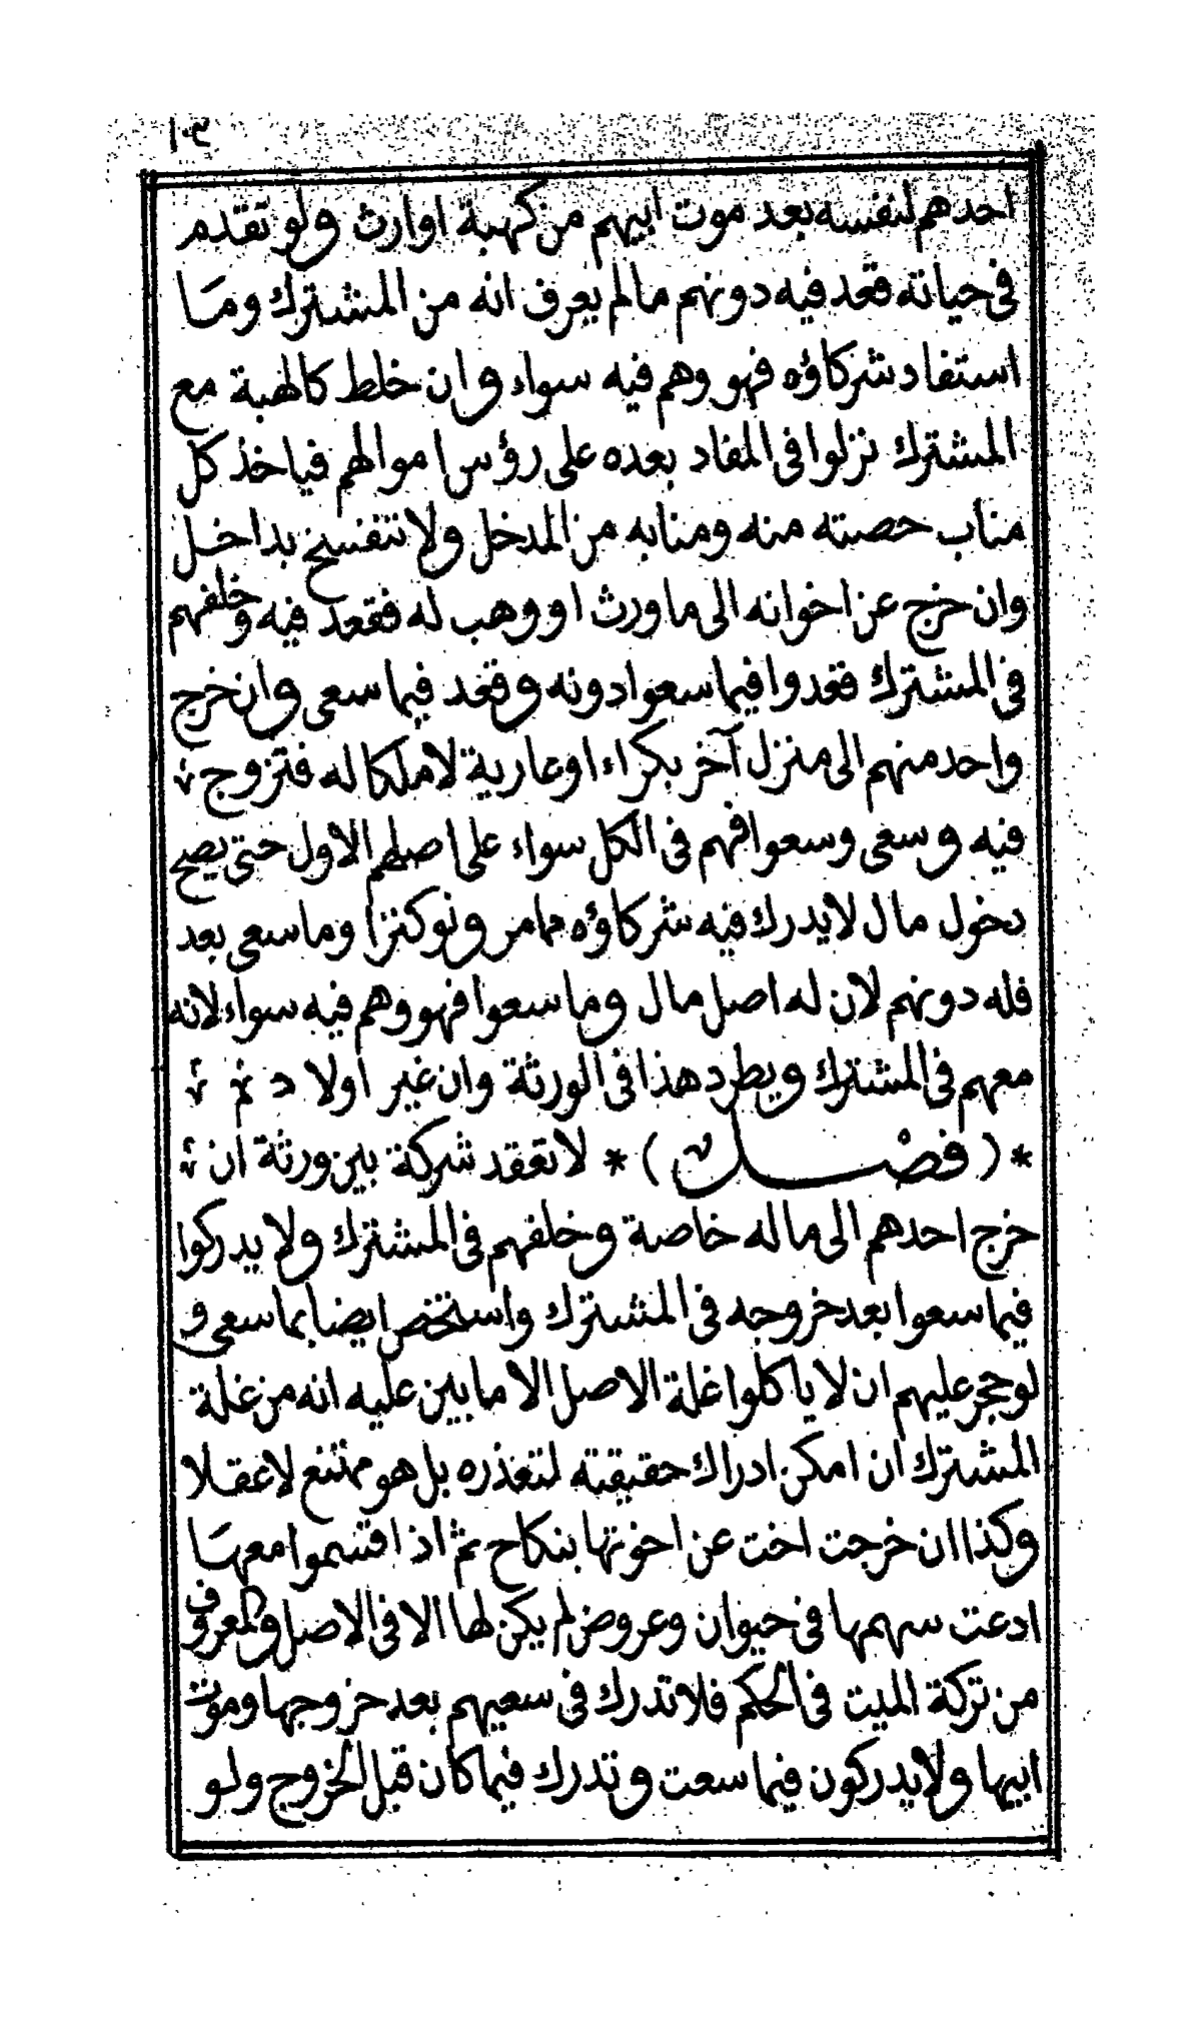 ١٠٣
احدهم لنفسه بعد موت ابيهم من كهبة اوارث ولو تقدم
فى حياته قعد فيه دونهم مالم يعرف انه من المشترك وما
استفاد شركاؤه فهو وهم فيه سواء وان خلط كالهبة مع
المشترك نزلوا فى المفاد بعده على رؤس اموالهم فياخذ كل
مناب حصته منه ومنابه من المدخل ولا تنفسخ بداخل
وان خرج عن اخوانه الى ما ورث او وهب له فقعد فيه وخلفهم
فى المشترك قعدوا فيما سعوا دونه وقعد فيما سعى وان خرج
واحد منهم الى منزل آخر بكراء او عارية لا ملكا له فتزوج
فيه وسعى وسعوا فهم فى الكل سواء على اصلهم الاول حتى يصح
دخول مال لا يدرك فيه شركاؤه مما مر ولو كنزا وما سعى بعد
فله دونهم لان له اصل مال وما سعوا فهو وهم فيه سواء لانه
معهم فى المشترك ويطرد هذا فى الورثة وان غير اولاد
* (فصل) * لا تعقد شركة بين ورثة ان
خرج احدهم الى ماله خاصة وخلفهم فى المشترك ولا يدركوا
فيما سعوا بعد خروجه فى المشترك واستخص ايضا بما سعى و
لو حجر عليهم ان لا ياكلوا غلة الاصل الا ما بين عليه انه من غلة
المشترك ان امكن ادراك حقيقته لتعذره بل هو ممتنع لا عقلا
وكذا ان خرجت اخت عن اخوتها بنكاح ثم اذا اقتسموا معها
ادعت سهمها فى حيوان وعروض لم يكن لها الا فى الاصل والمعروف
من تركة الميت فى الحكم فلا تدرك فى سعيهم بعد خروجها وموت
ابيها ولا يدركون فيما سعت وتدرك فيما كان قبل الخروج ولو